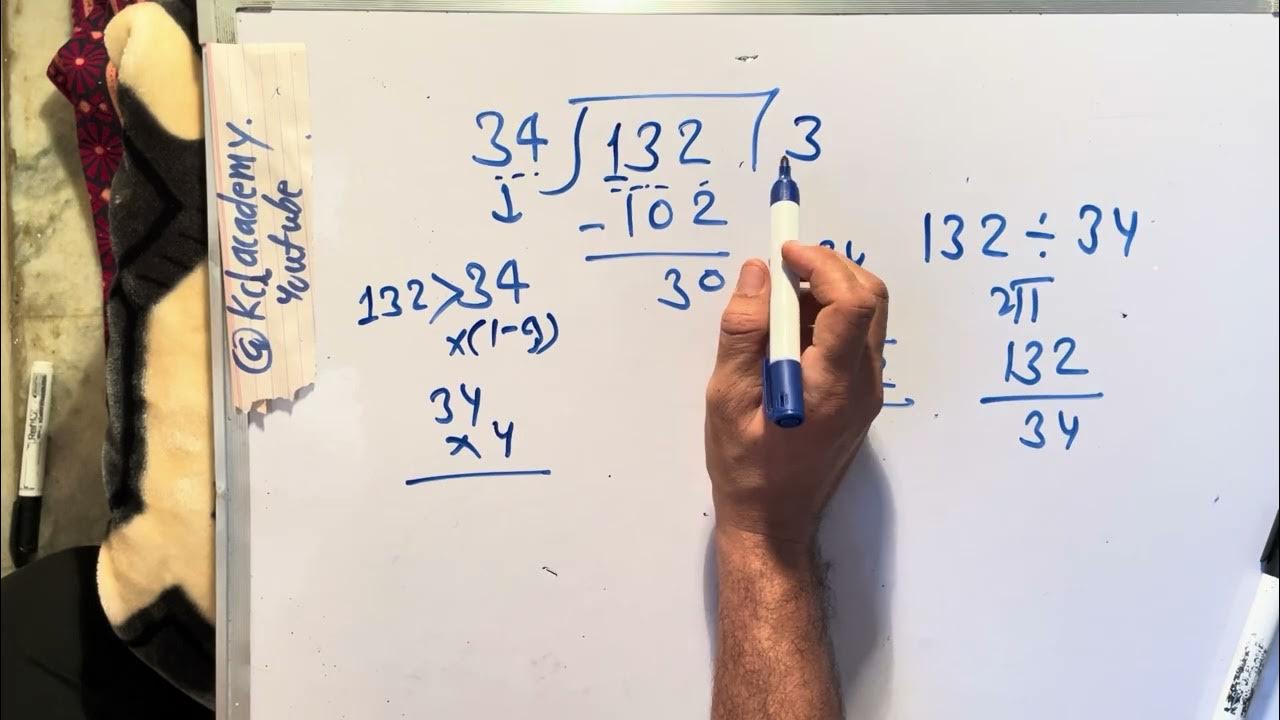 @Kclacademy.
Youtube
34 ) 132 ( 3
- 102
30
132 > 34
x(1-9)
34
x 4
132 ÷ 34
132
34